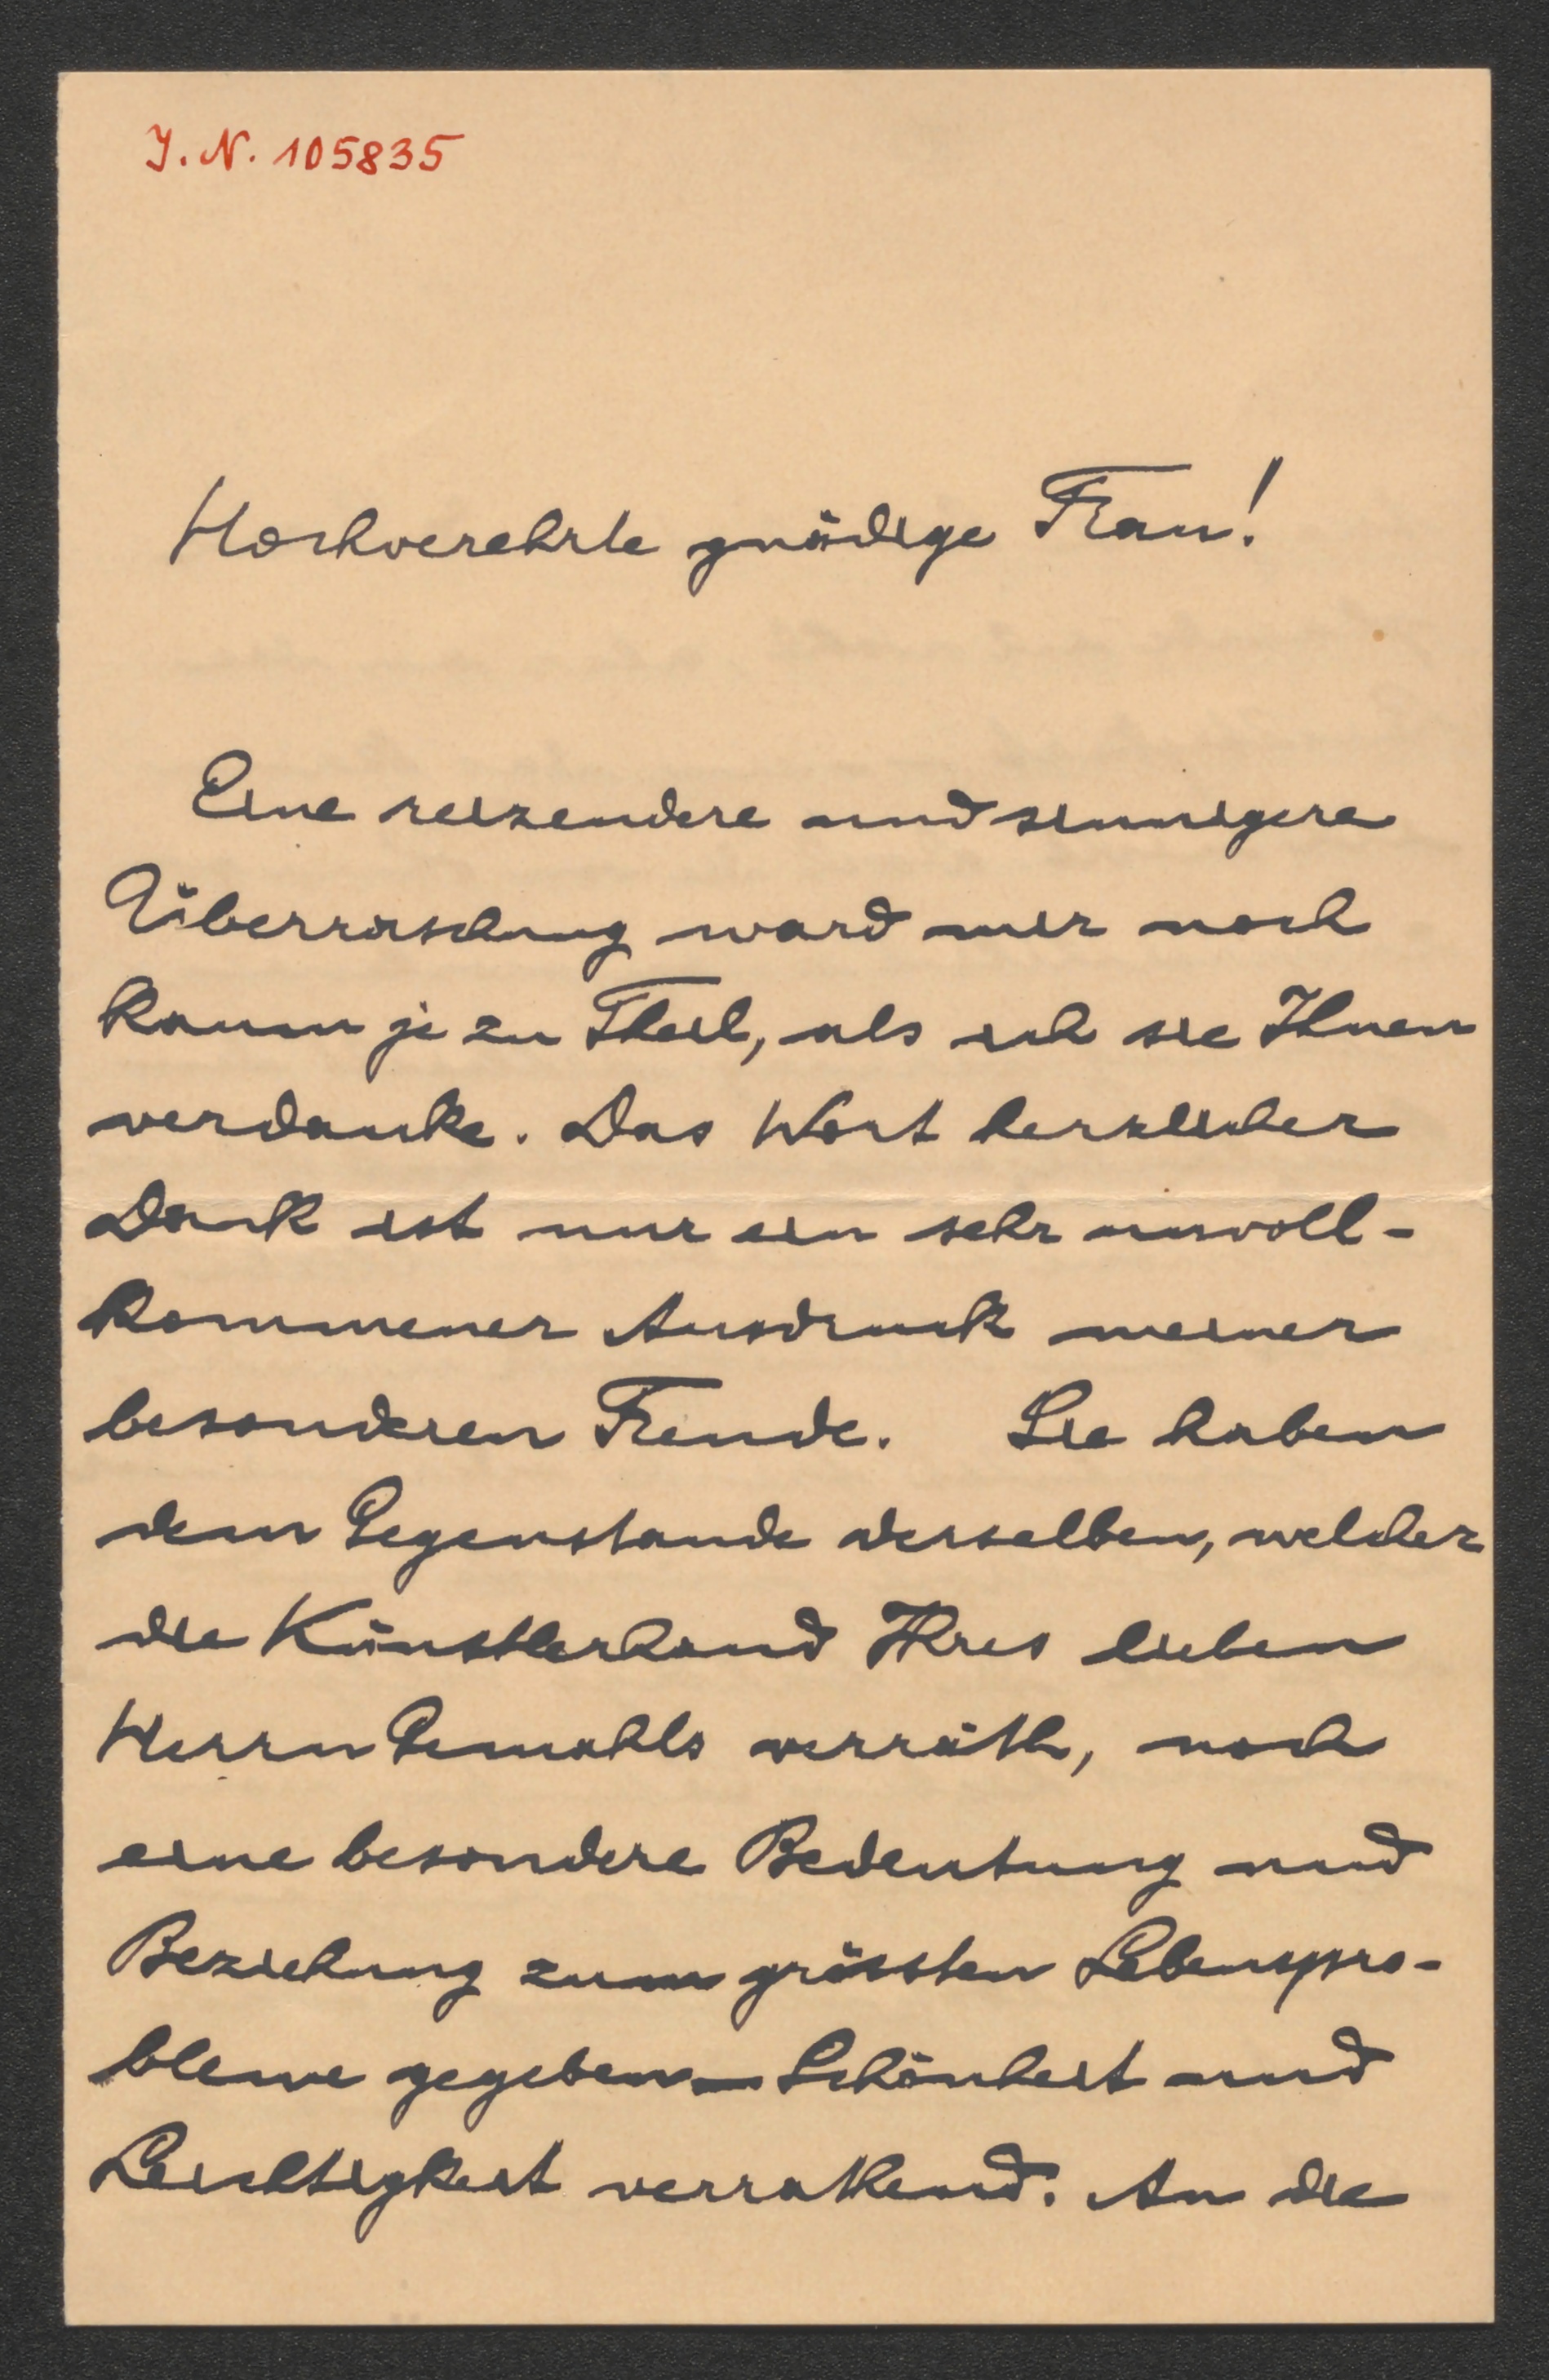 J. N. 105835
Hochverehrte gnädige Frau!
Eine reizendere und sinnigere
Überraschung ward mir noch
kaum je zu Theil, als ich sie Ihnen
verdanke. Das Wort herzlicher
Dank ist nur ein sehr unvoll-
kommener Ausdruck meiner
besonderen Freude. Sie haben
dem Gegenstande derselben, welcher
die Künstlerhand Ihres lieben
Herrn Gemahls verräth, noch
eine besondere Bedeutung und
Beziehung zum grössten Lebenspro-
bleme gegeben – Schönheit und
Leichtigkeit verrathend. An die